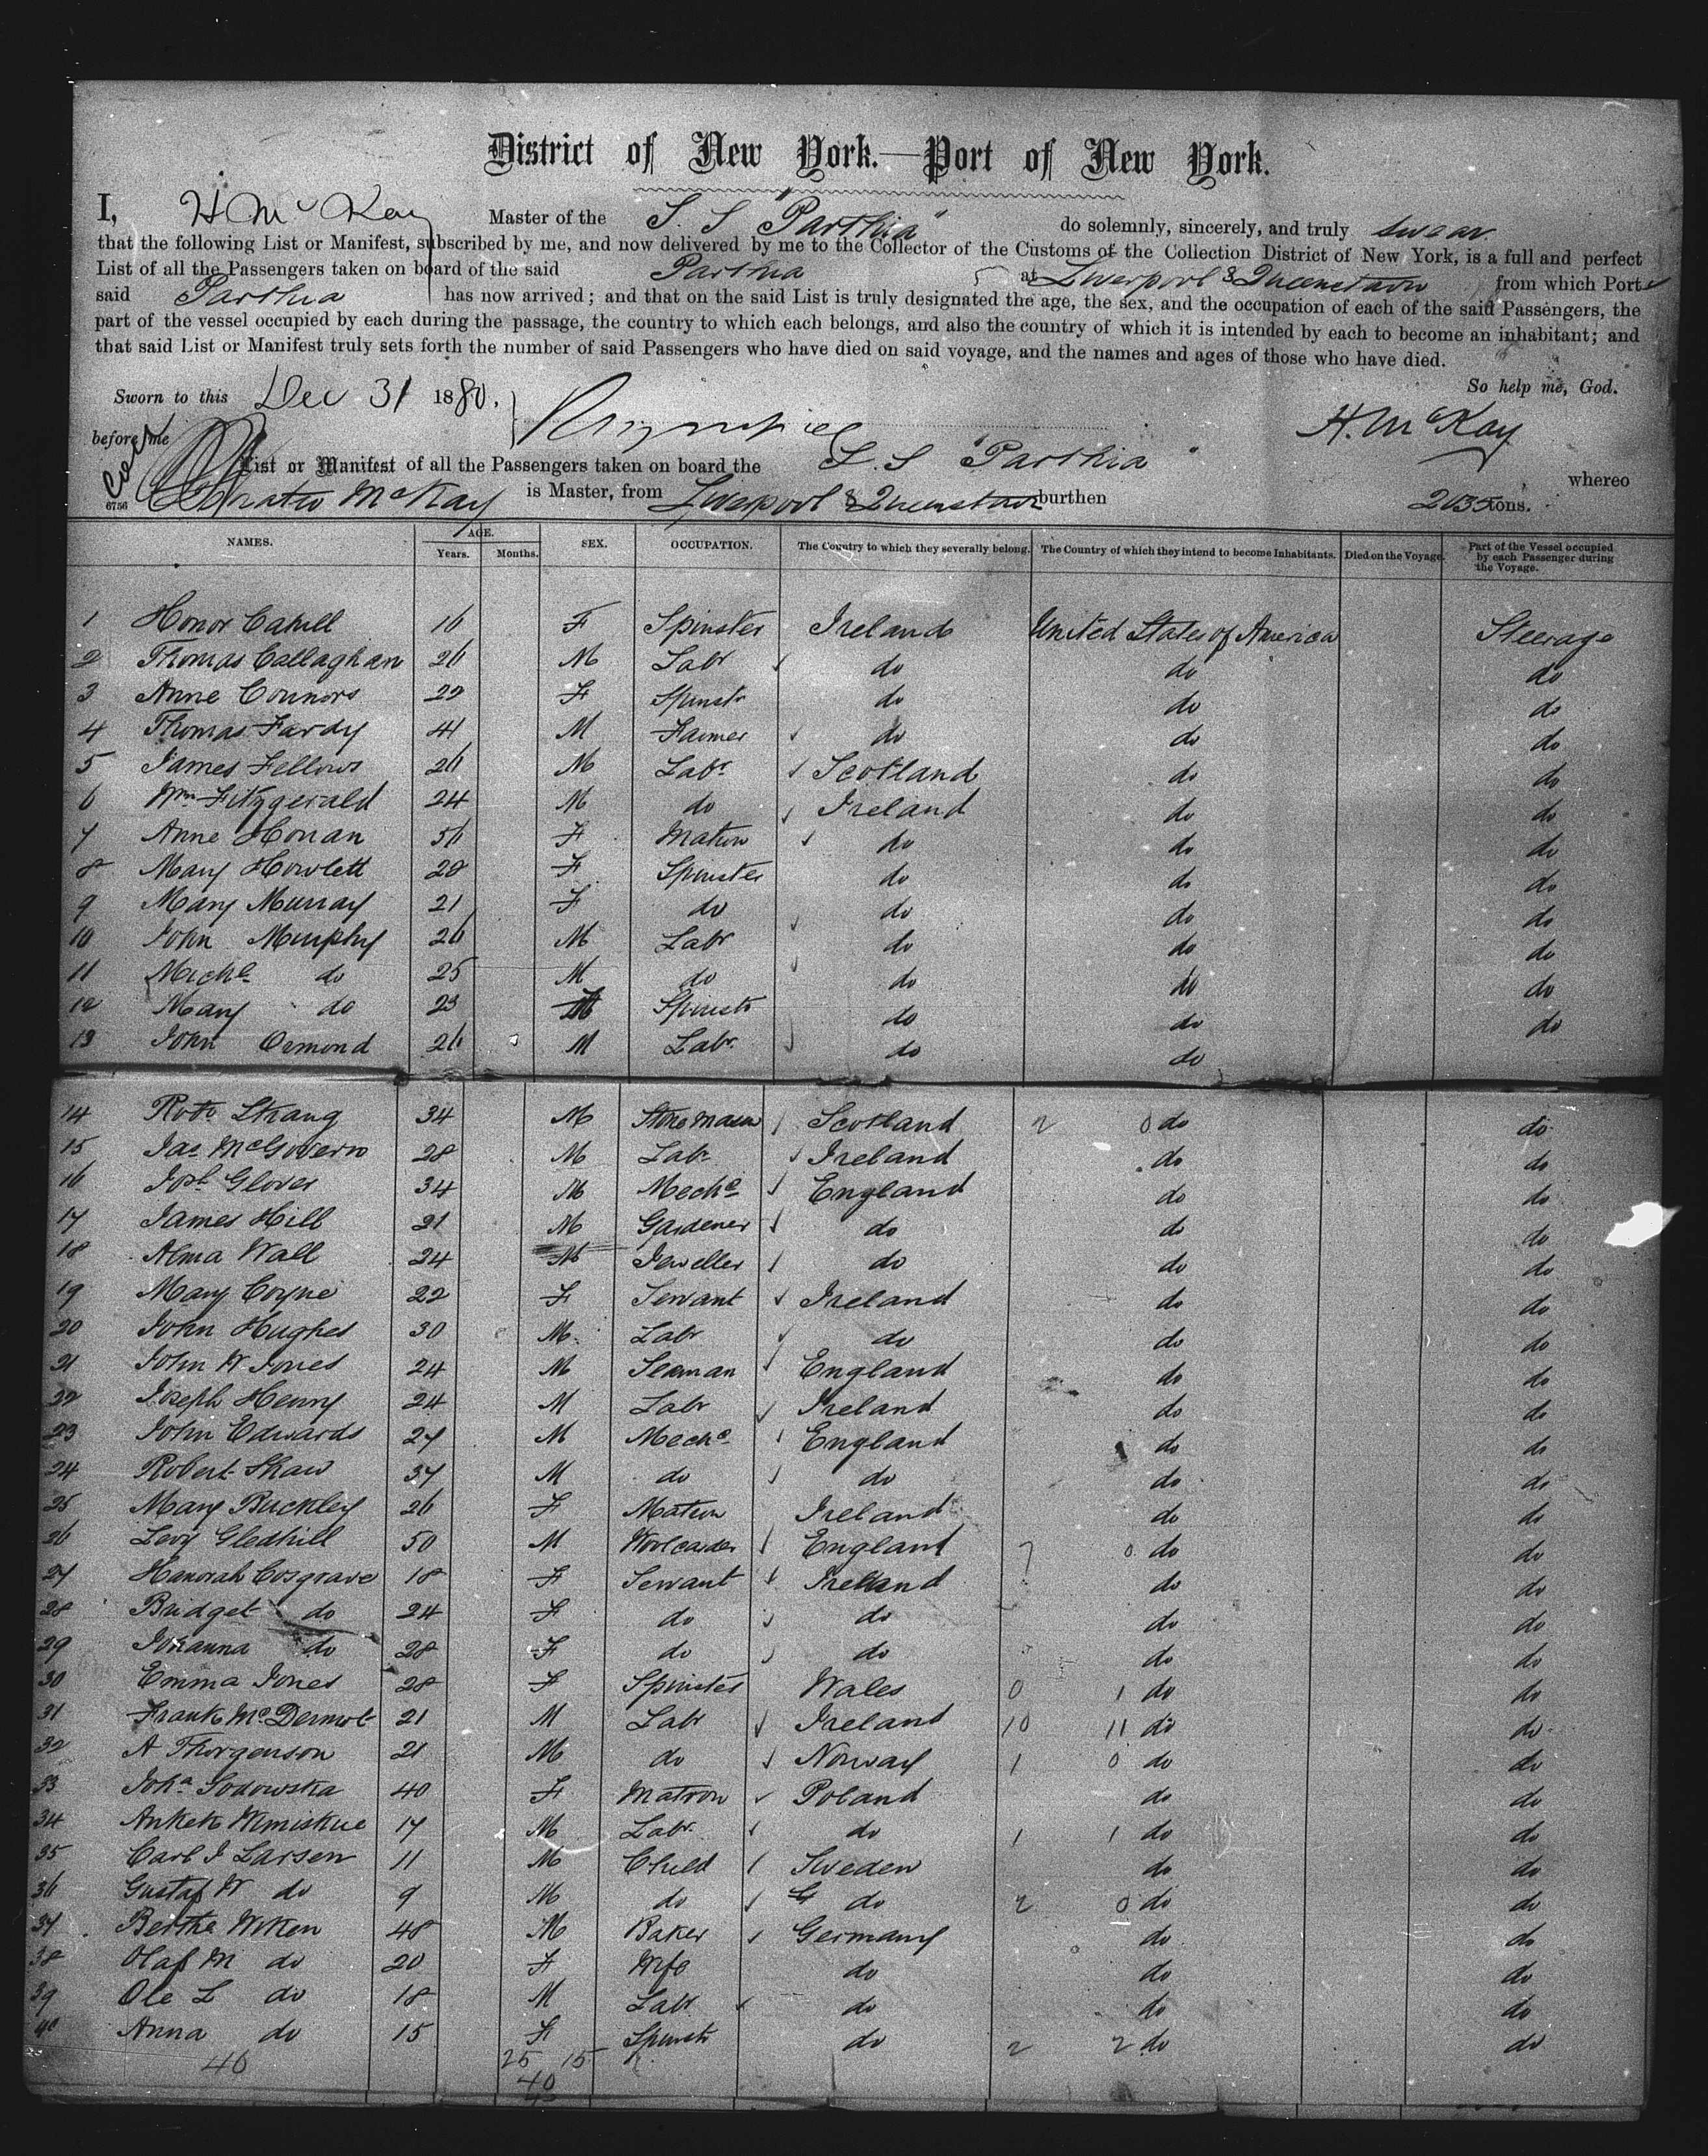 District of New York.—Port of New York.
I, H McKay Master of the S. S "Parthia" do solemnly, sincerely, and truly swear
that the following List or Manifest, subscribed by me, and now delivered by me to the Collector of the Customs of the Collection District of New York, is a full and perfect
List of all the Passengers taken on board of the said Parthia at Liverpool & Queenstown from which Port
said Parthia has now arrived; and that on the said List is truly designated the age, the sex, and the occupation of each of the said Passengers, the
part of the vessel occupied by each during the passage, the country to which each belongs, and also the country of which it is intended by each to become an inhabitant; and
that said List or Manifest truly sets forth the number of said Passengers who have died on said voyage, and the names and ages of those who have died.
So help me, God.
Sworn to this Dec 31 1880,
before me H. McKay
List or Manifest of all the Passengers taken on board the S. S "Parthia" whereo
6756 Horatio McKay is Master, from Liverpool & Queenstown burthen 2035 tons.
NAMES. AGE. Years. Months. SEX. OCCUPATION. The Country to which they severally belong. The Country of which they intend to become Inhabitants. Died on the Voyage. Part of the Vessel occupied by each Passenger during the Voyage.
1 Honor Cahill 16 F Spinster Ireland United States of America Steerage
2 Thomas Callaghan 26 M Labr do do do
3 Anne Connors 22 F Spinstr do do do
4 Thomas Fardy 41 M Farmer do do do
5 James Fellows 26 M Labr Scotland do do
6 Wm Fitzgerald 24 M do Ireland do do
7 Anne Honan 56 F Matron do do do
8 Mary Howlett 28 F Spinster do do do
9 Mary Murray 21 F do do do do
10 John Murphy 26 M Labr do do do
11 Michl do 25 M do do do do
12 Mary do 23 F Spinstr do do do
13 John Ormond 26 M Labr. do do
14 Robt Strang 34 M Stone Mason Scotland 2 0 do do
15 Jas McGovern 28 M Labr Ireland do do
16 Josh Glover 34 M Mechc England do do
17 James Hill 21 M Gardener do do do
18 Alma Wall 24 M Jeweller do do do
19 Mary Coyne 22 F Servant Ireland do do
20 John Hughes 30 M Labr do do do
21 John W. Jones 24 M Seaman England do do
22 Joseph Henry 24 M Labr Ireland do do
23 John Edwards 27 M Mechc England do do
24 Robert Shaw 37 M do do do do
25 Mary Buckley 26 F Matron Ireland do do
26 Levy Gledhill 50 M Woolcarder England 7 0 do do
27 Hanorah Cosgrave 18 F Servant Ireland do do
28 Bridget do 24 F do do do do
29 Johanna do 28 F do do do do
30 Emma Jones 28 F Spinster Wales 0 1 do do
31 Frank McDermot 21 M Labr Ireland 10 11 do do
32 A Thorgenson 21 M do Norway 1 0 do do
33 Joha Sodowska 40 F Matron Poland do do
34 17 M Labr. do 1 1 do do
35 Carl J Larsen 11 M Child Sweden do do
36 Gustaf W do 9 M do do 2 0 do do
37 Berthe Wiken 48 M Baker Germany do do
38 Olaf M do 20 F Wife do do do
39 Ole L do 18 M Labr do do do
40 Anna do 15 F Spinstr do 2 2 do do
40 25 15
40